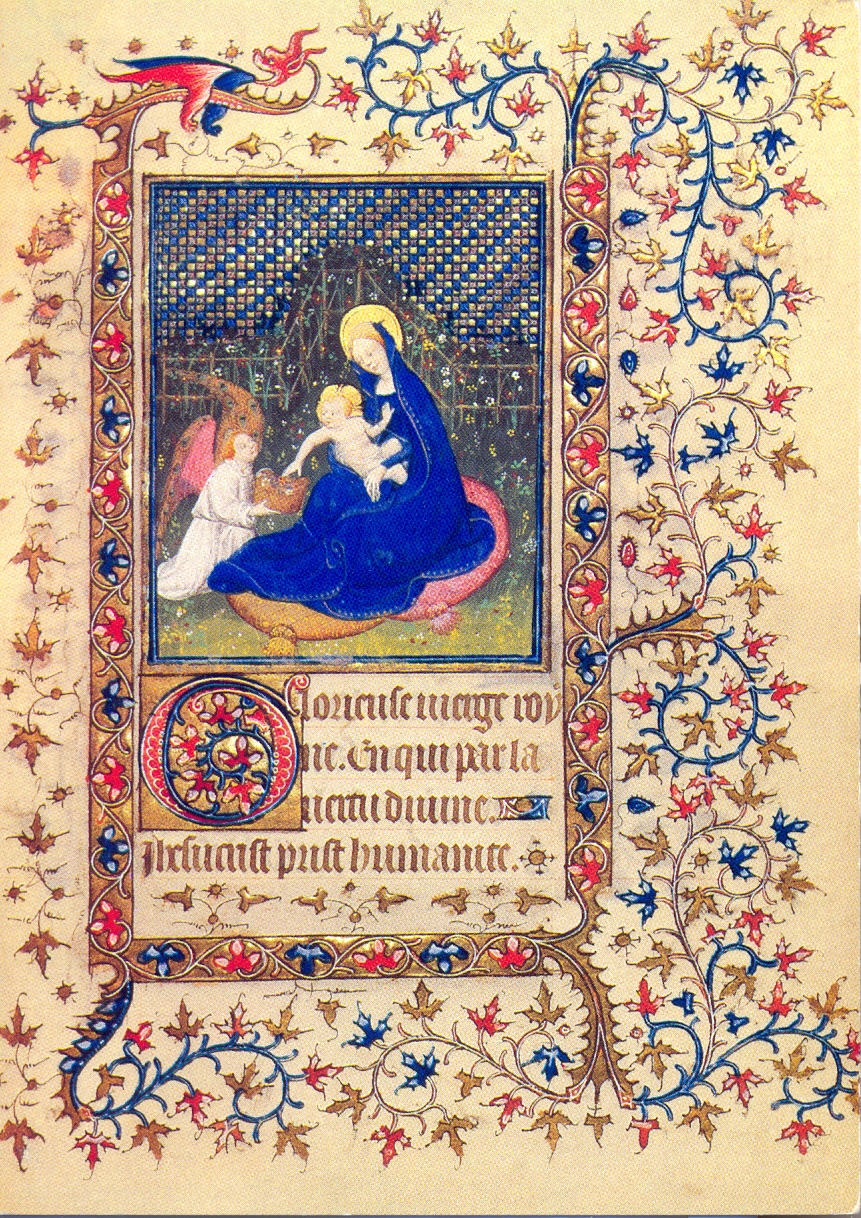 Glorieuse uierge roy
ne. En qui par la
uertu diuine.
Jhesucrist prist humanite.